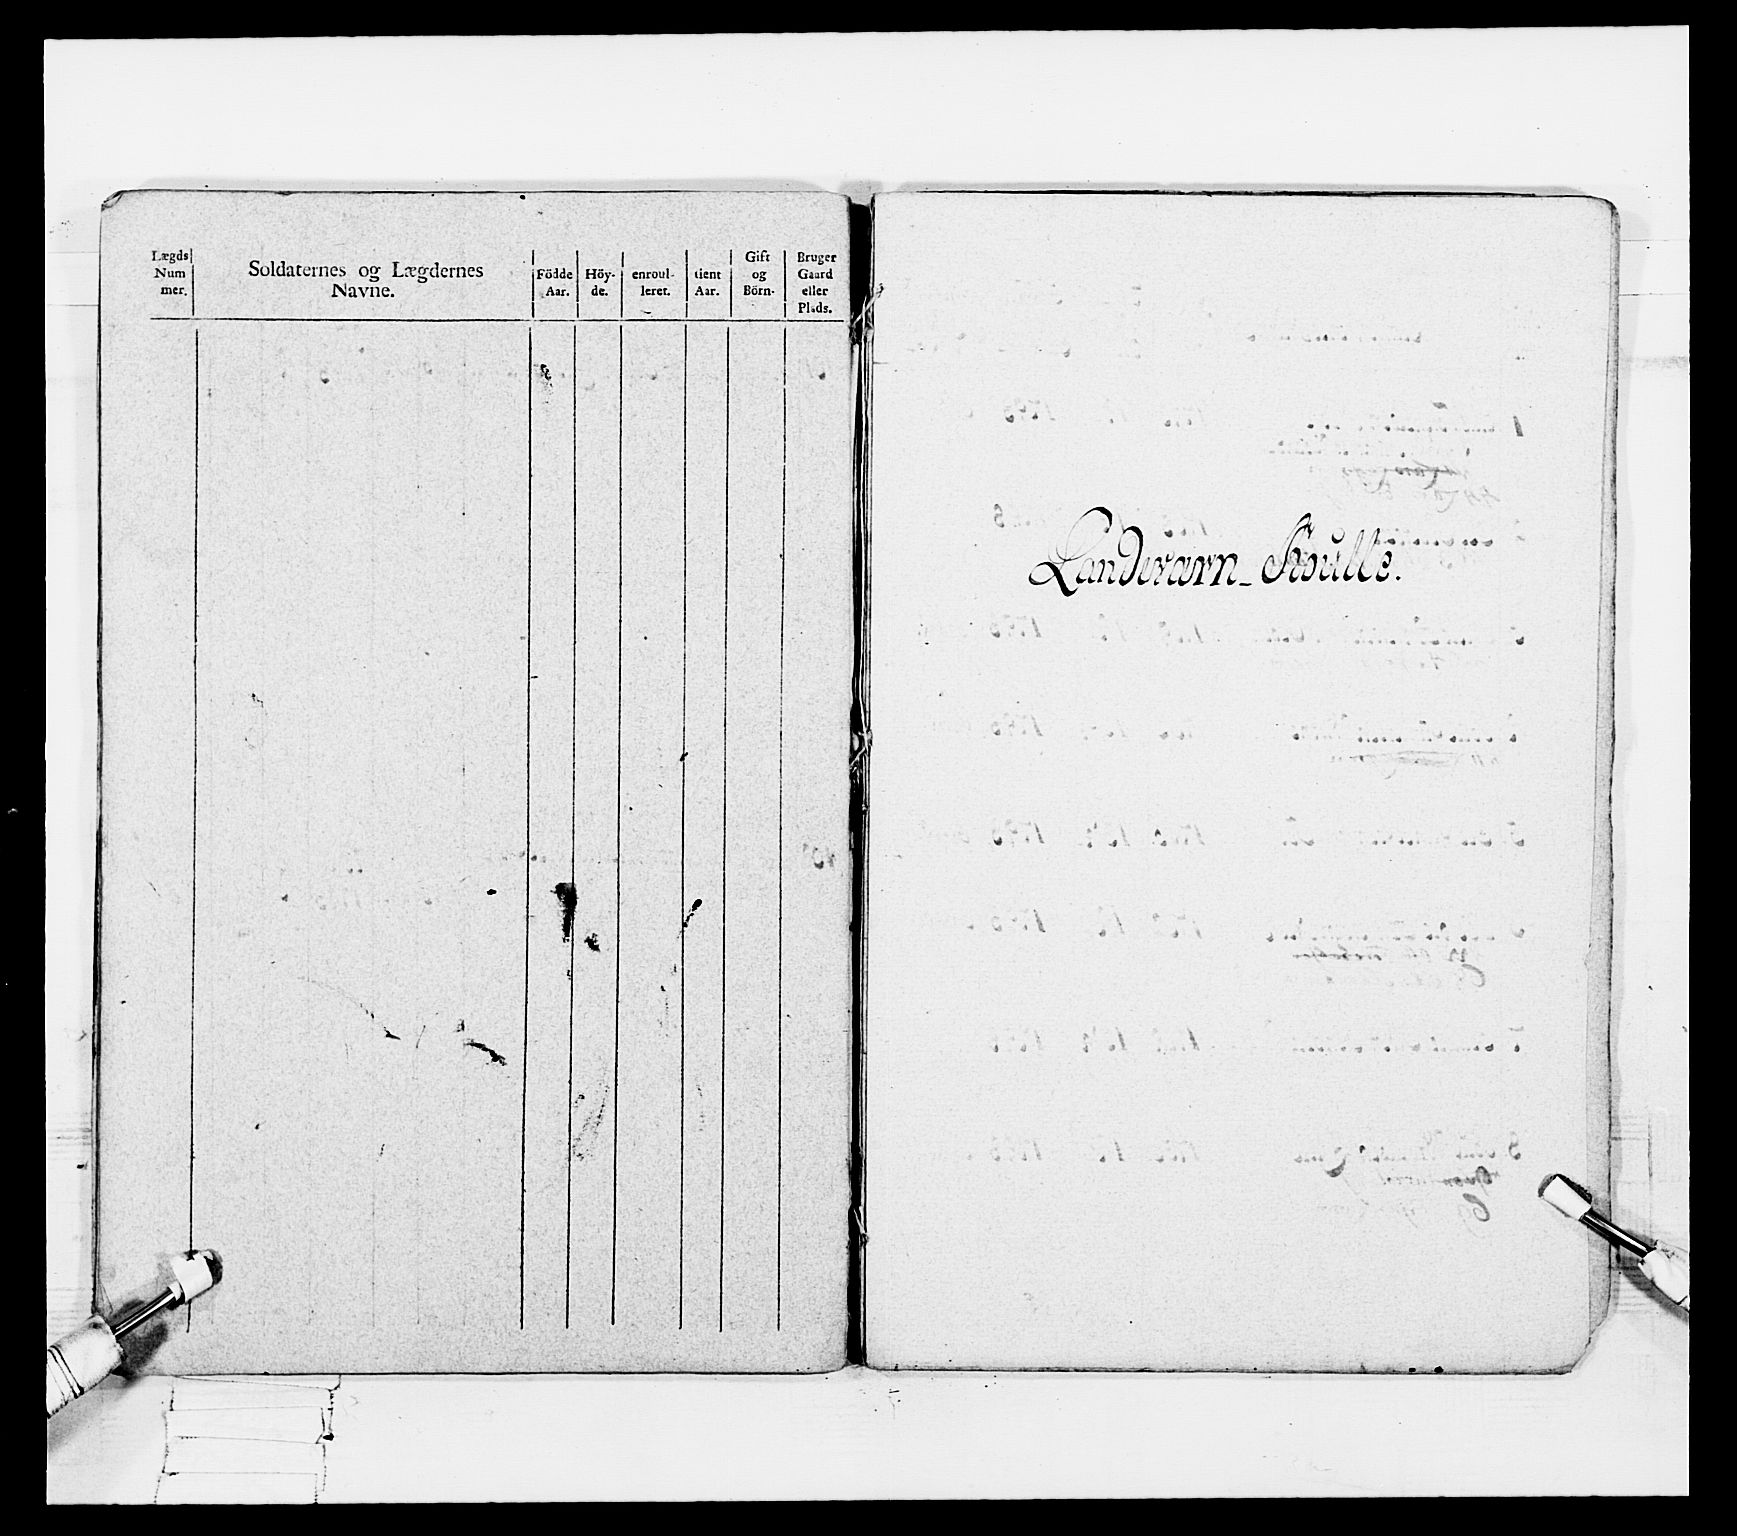 Lægds Num mer.
Soldaternes og Lægdernes Navne.
Födde Aar.
Höy- de.
enroul- leret.
tient Aar.
Gift og Börn.
Bruger Gaard eller Plads.
Landeværn_ Roulle.